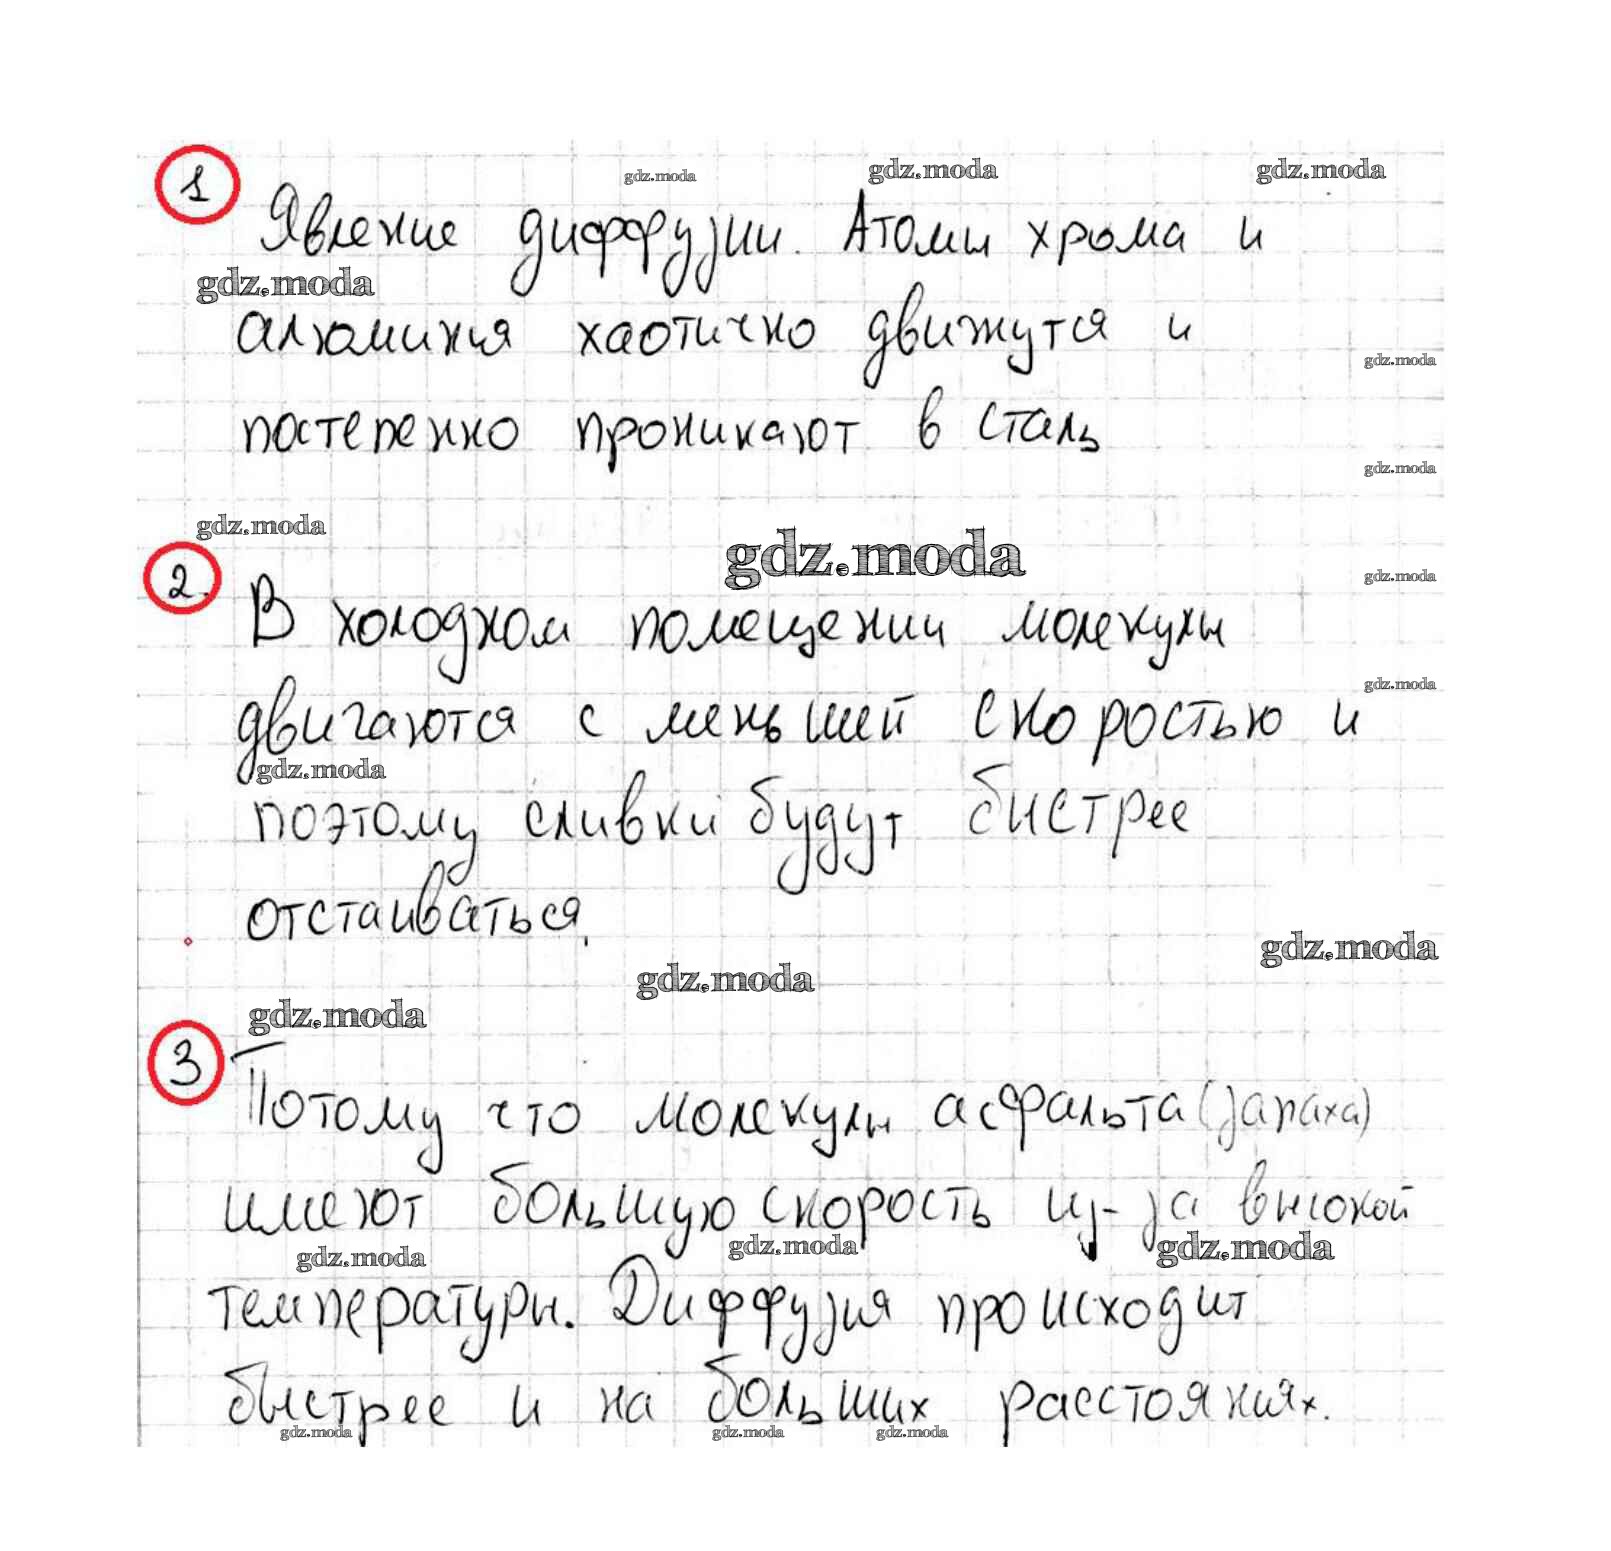 1
gdz.moda gdz.moda gdz.moda
Явление диффузии. Атомы хрома и
gdz.moda
алюминия хаотично движутся и
gdz.moda
постепенно проникают в сталь
gdz.moda
gdz.moda
gdz.moda
gdz.moda
2.
В холодном помещении молекулы
gdz.moda
двигаются с меньшей скоростью и
gdz.moda
поэтому сливки будут быстрее
отстаиваться.
gdz.moda
gdz.moda
gdz.moda
3
Потому что молекулы асфальта (запаха)
имеют большую скорость из-за высокой
gdz.moda gdz.moda gdz.moda
температуры. Диффузия происходит
быстрее и на больших расстояниях.
gdz.moda gdz.moda gdz.moda